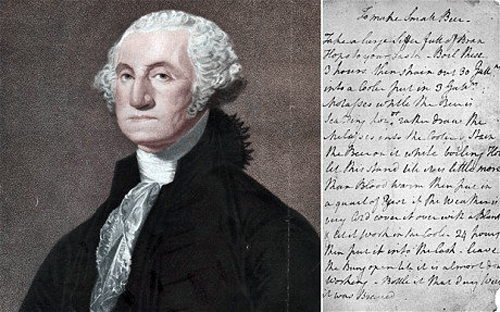 To make Small Beer
Take a large Siffer full of Bran
Hops to your Taste. Boil these
3 hours then strain out 30 Gall.ns
into a Cooler put in 3 Gall.ns
Molasses while the Beer is
Scalding hot or rather draw the
Melasses into the Cooler & Strain
the Beer on it while boiling Hot
let this stand till it is little more
than Blood warm then put in
a quart of Yest if the Weather is
very Cold cover it over with a Blank
& let it work in the Cooler 24 hours
then put it into the Cask leave
the Bung open till it is almost
working Bottle it that day Week
it was Brewed